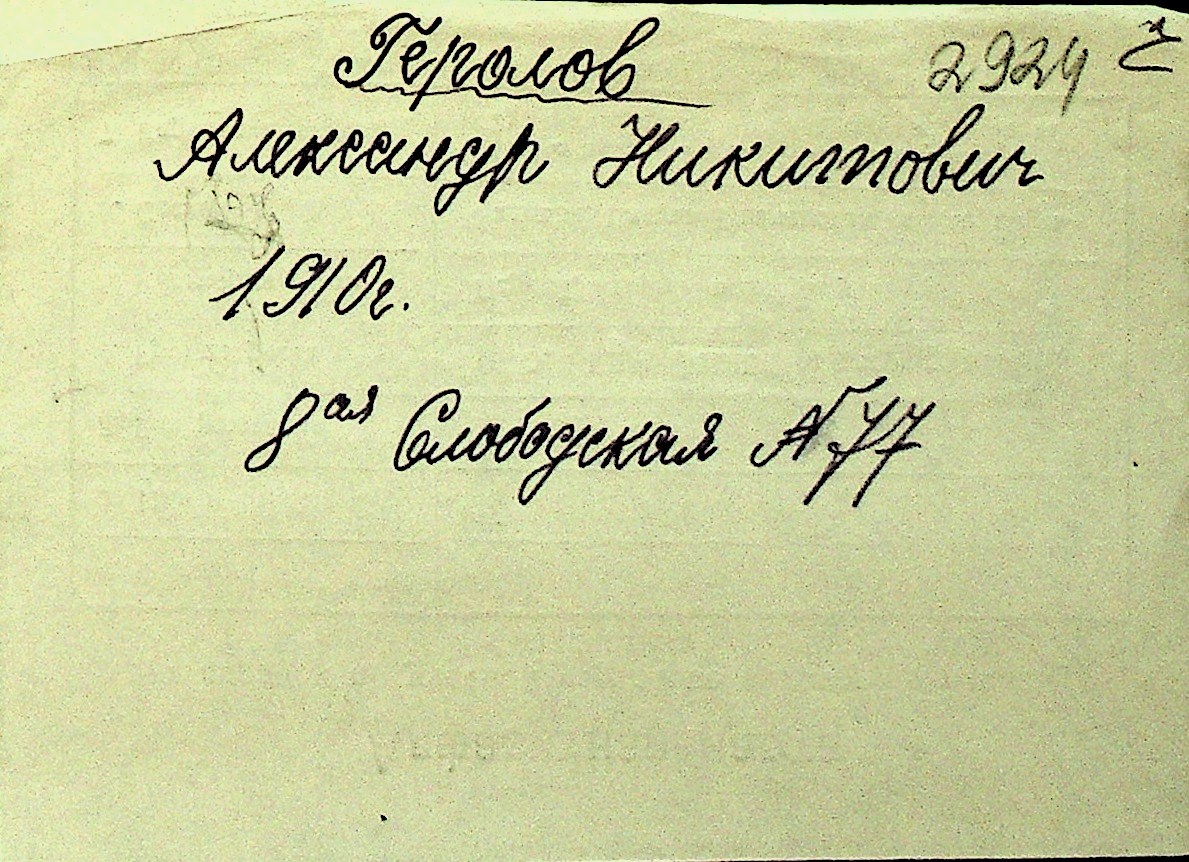 Геролов 2924
Александр Никитович
1910г.
8ая Слободская № 77